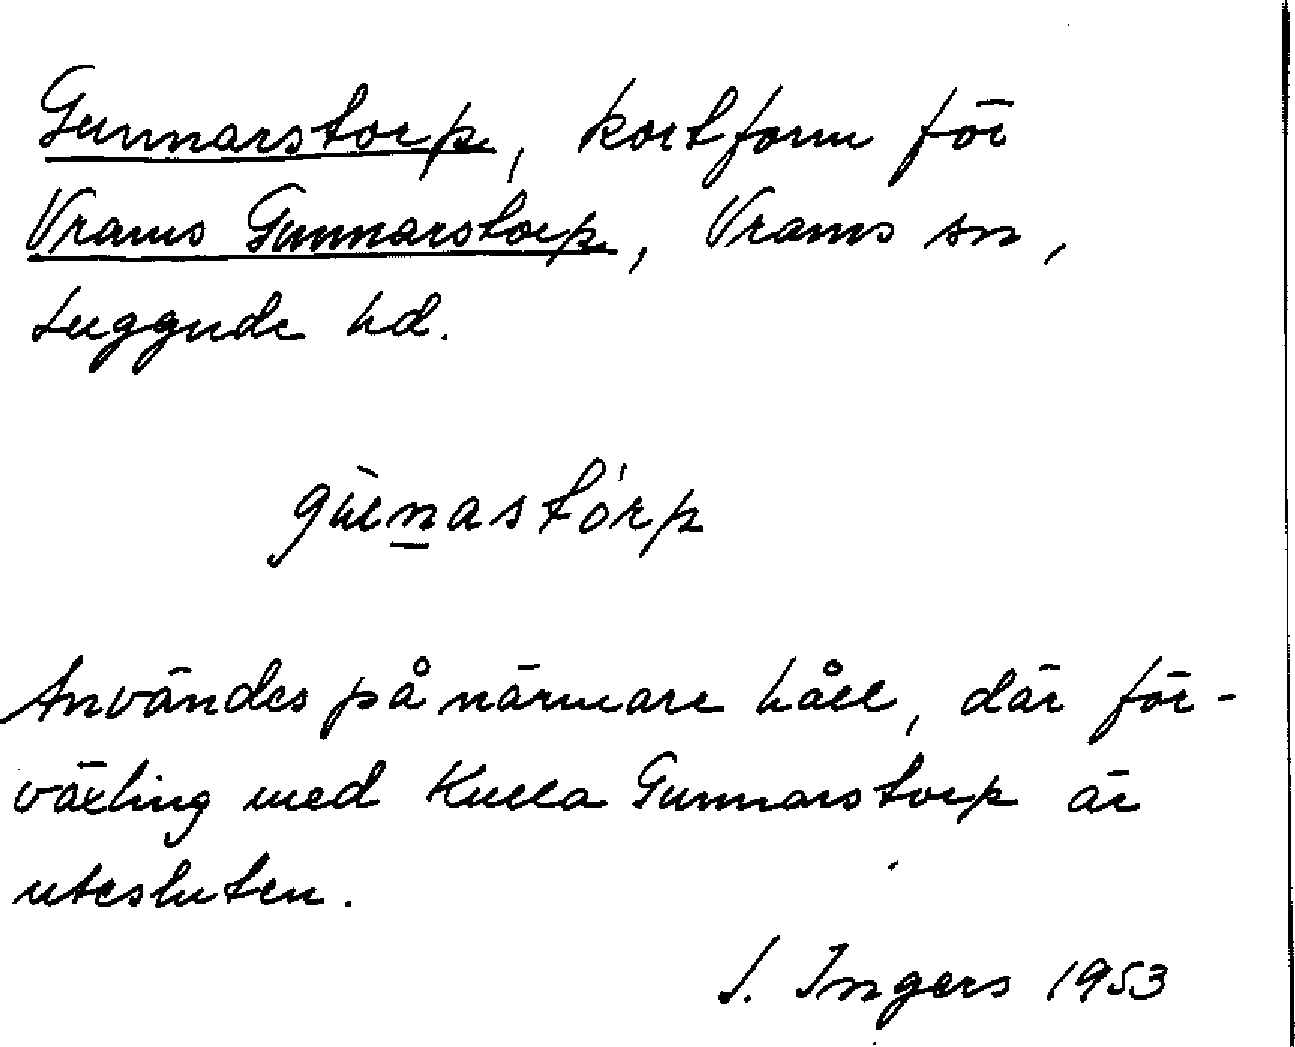 Gunnarstorp, kortform för
Vrams Gunnarstorp, Vrams sn,
Luggude hd.
Användes på närmare håll, där för-
växling med Kulla Gunnarstorp är
utesluten.
I. Ingers 1953